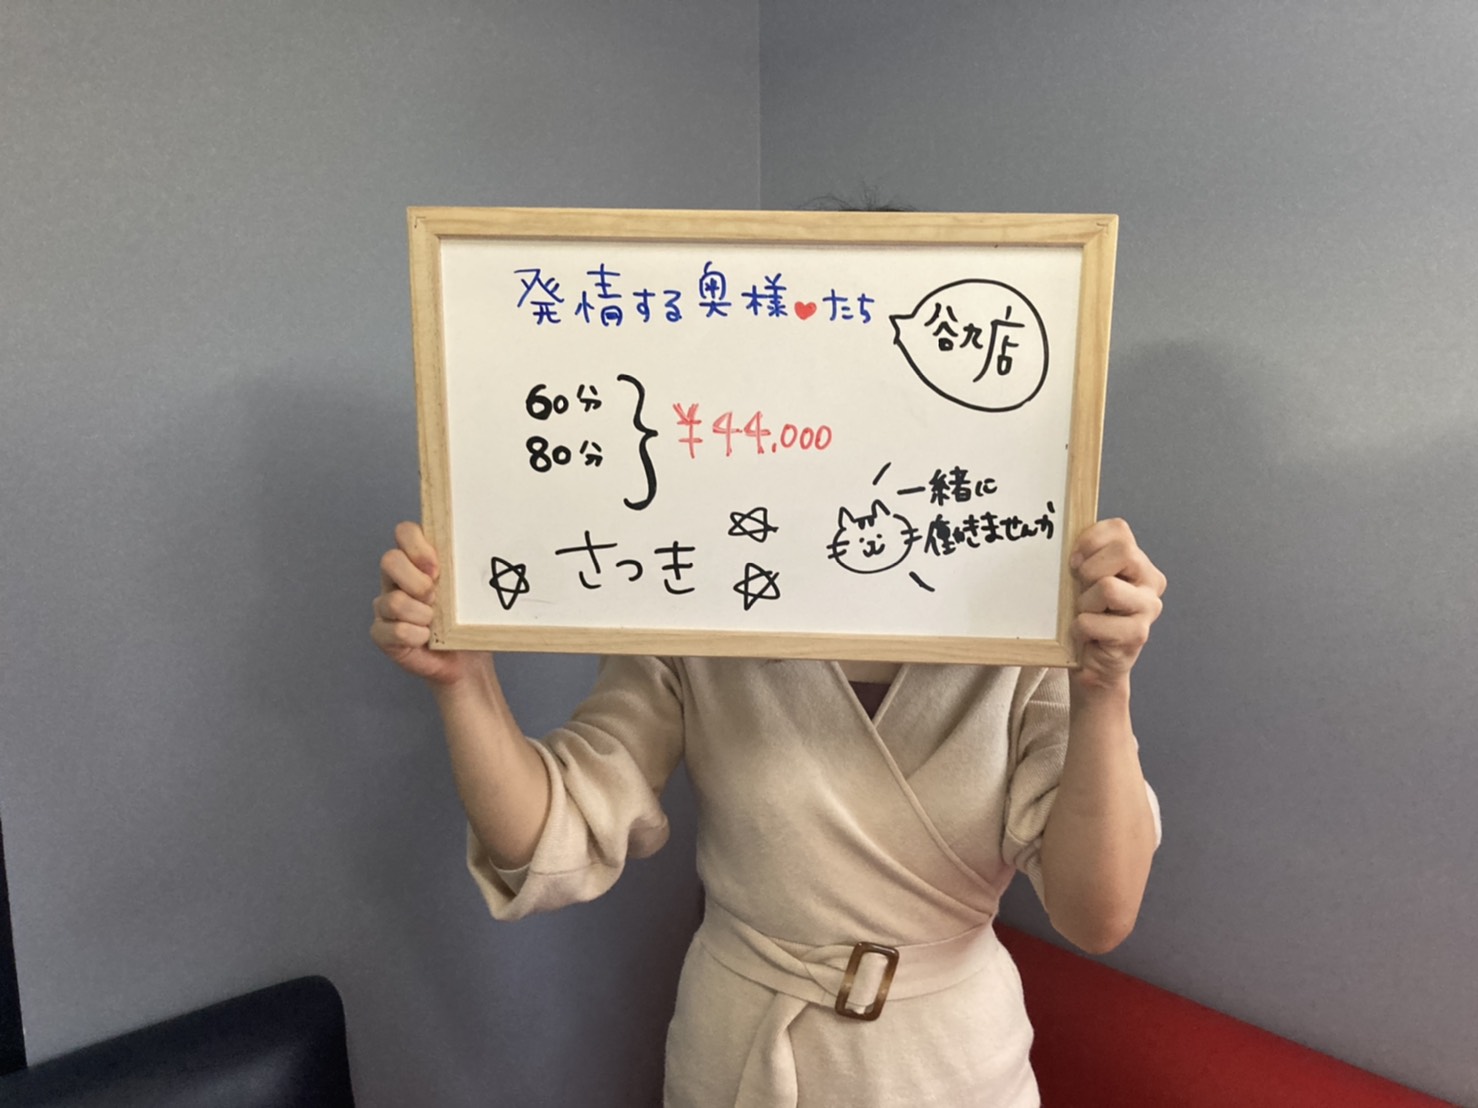 発情する奥様♥たち
谷九店
60分
80分
¥44.000
一緒に
働きませんか
さっき